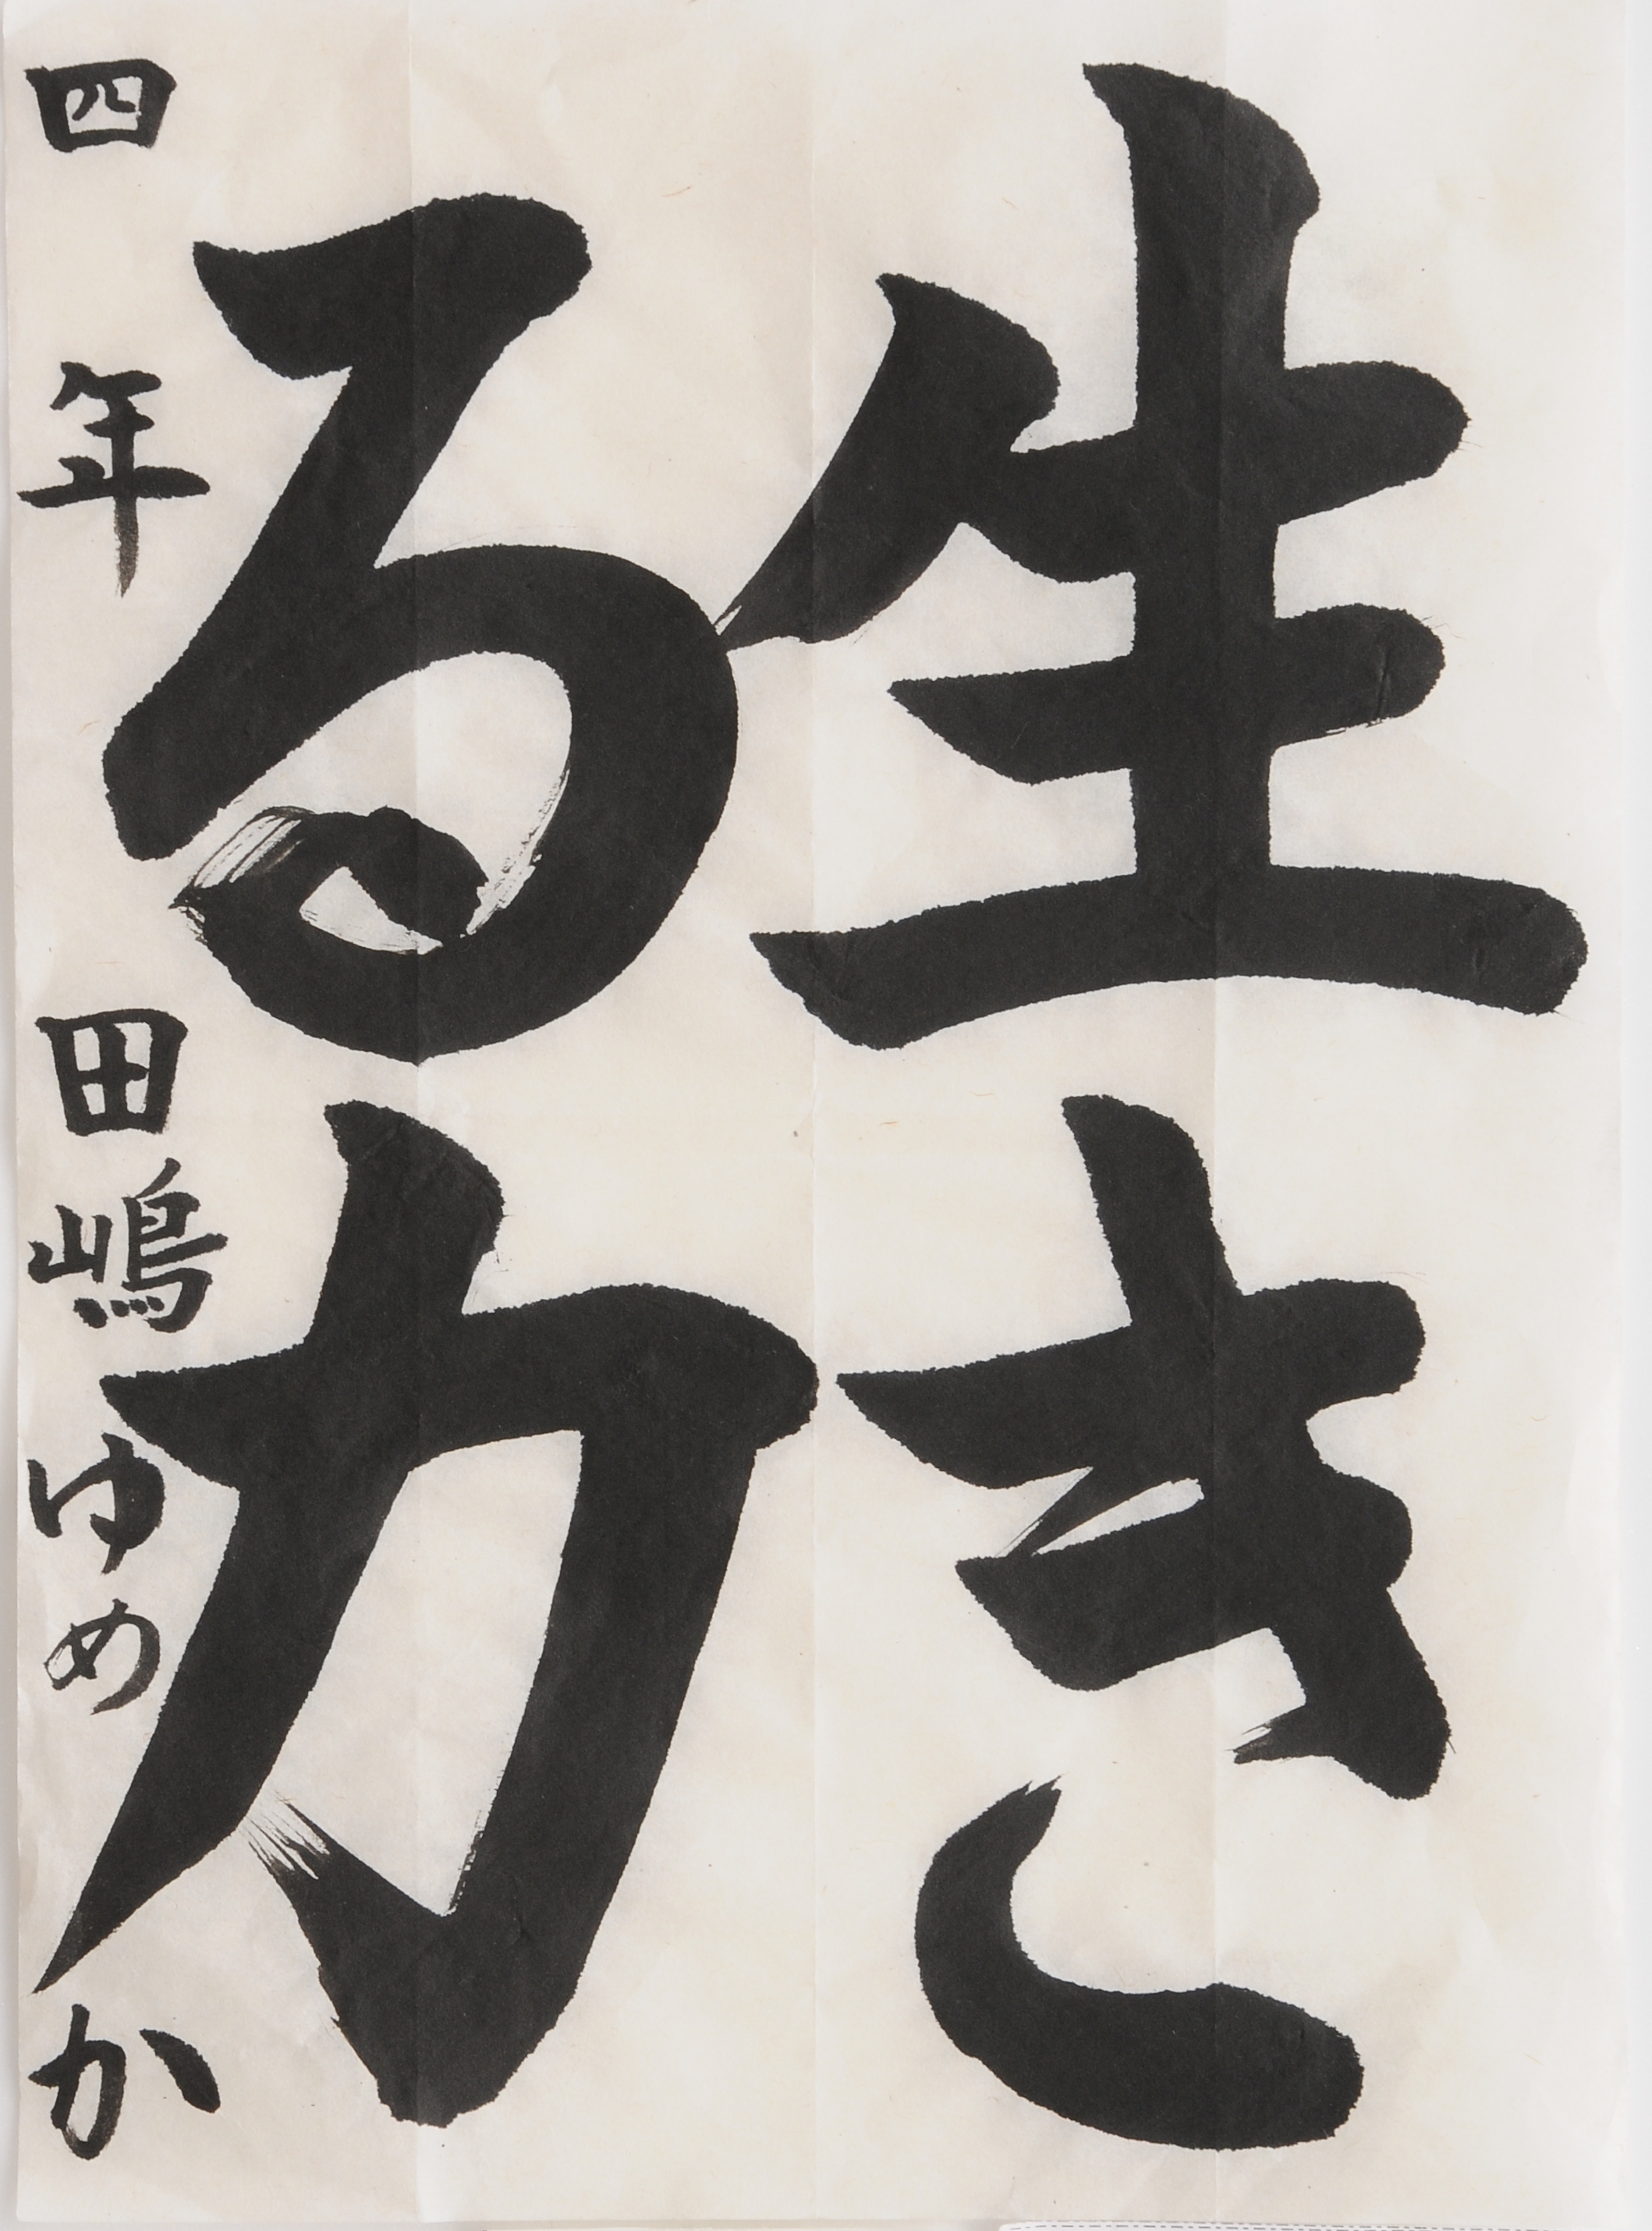 生き
る力
四年 田嶋ゆめか